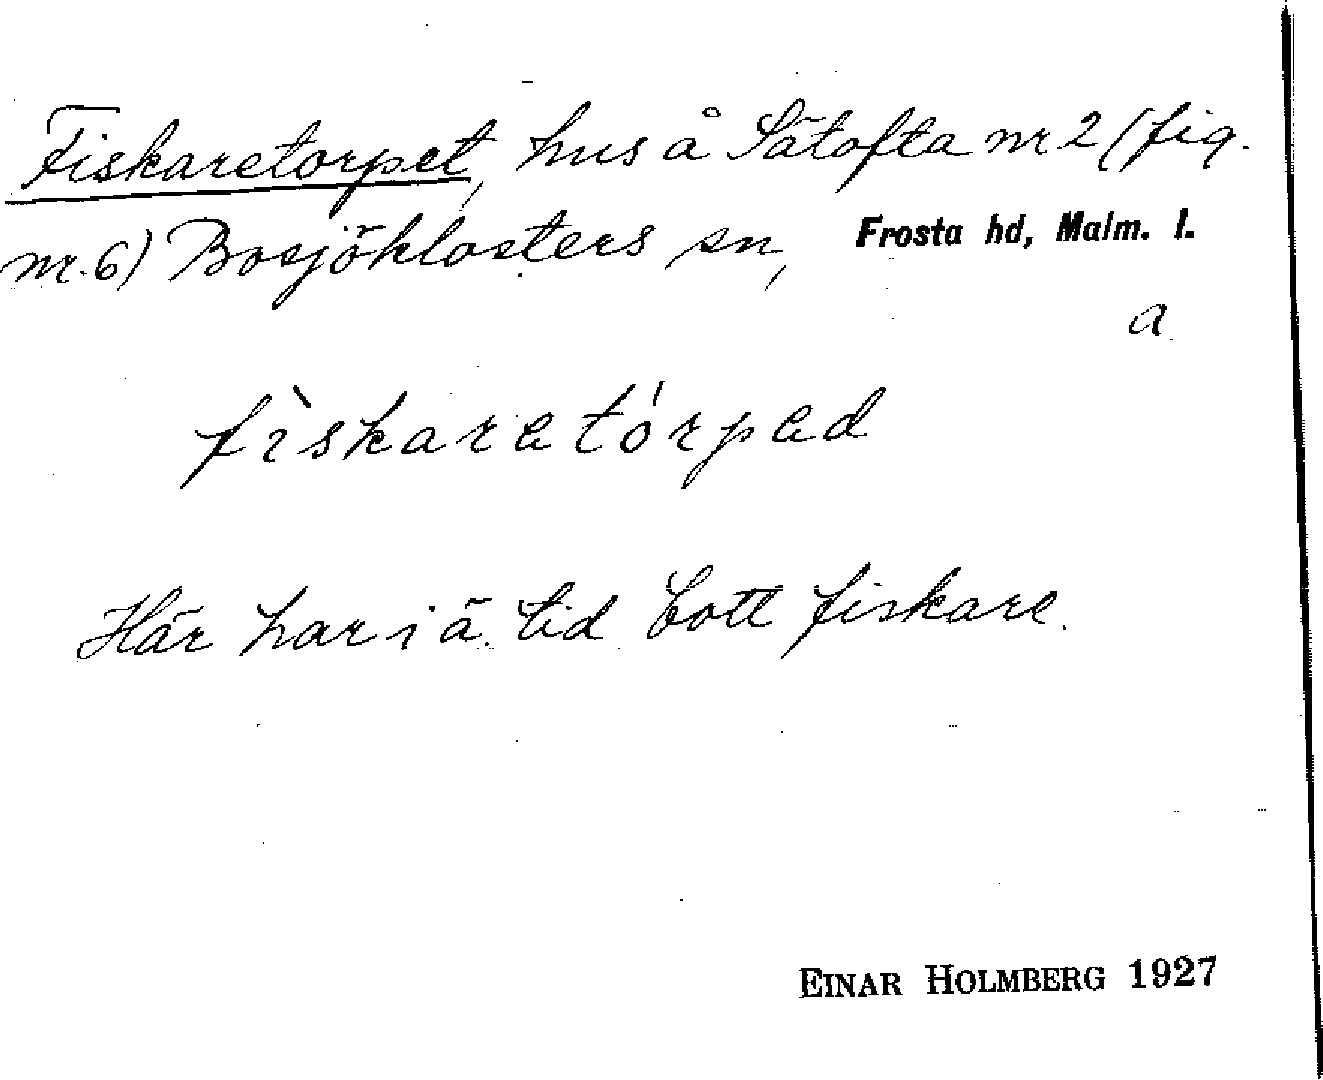 Fiskaretorpet, hus å Sätofta nr 2 (fig.
nr. 6) Bosjöklosters sn, Frosta hd, Malm. l.
a
fìskaretórpad
Här har i ä. tid bott fiskare.
EINAR HOLMBERG 1927